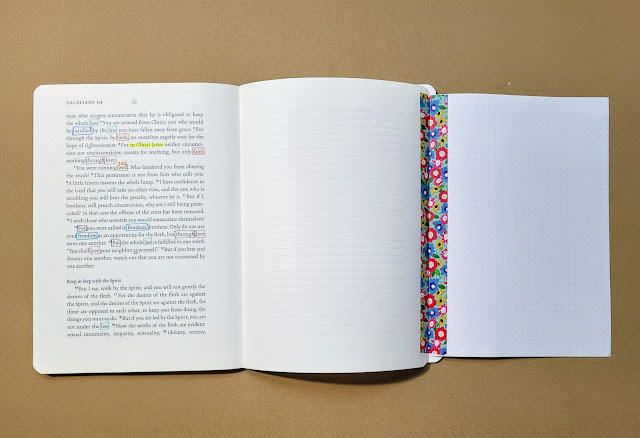 GALATIANS 5:4 22
man who accepts circumcision that he is obligated to keep
the whole law. ⁴You are severed from Christ, you who would
be justified by the law; you have fallen away from grace. ⁵For
through the Spirit, by faith, we ourselves eagerly wait for the
hope of righteousness. ⁶For in Christ Jesus neither circumci-
sion nor uncircumcision counts for anything, but only faith
working through love.
⁷You were running well. Who hindered you from obeying
the truth? ⁸This persuasion is not from him who calls you.
⁹A little leaven leavens the whole lump. ¹⁰I have confidence in
the Lord that you will take no other view, and the one who is
troubling you will bear the penalty, whoever he is. ¹¹But if I,
brothers, still preach circumcision, why am I still being perse-
cuted? In that case the offense of the cross has been removed.
¹²I wish those who unsettle you would emasculate themselves!
¹³For you were called to freedom, brothers. Only do not use
your freedom as an opportunity for the flesh, but through love
serve one another. ¹⁴For the whole law is fulfilled in one word:
"You shall love your neighbor as yourself." ¹⁵But if you bite and
devour one another, watch out that you are not consumed by
one another.
Keep in Step with the Spirit
¹⁶But I say, walk by the Spirit, and you will not gratify the
desires of the flesh. ¹⁷For the desires of the flesh are against
the Spirit, and the desires of the Spirit are against the flesh, for
these are opposed to each other, to keep you from doing the
things you want to do. ¹⁸But if you are led by the Spirit, you are
not under the law. ¹⁹Now the works of the flesh are evident:
sexual immorality, impurity, sensuality, ²⁰idolatry, sorcery,